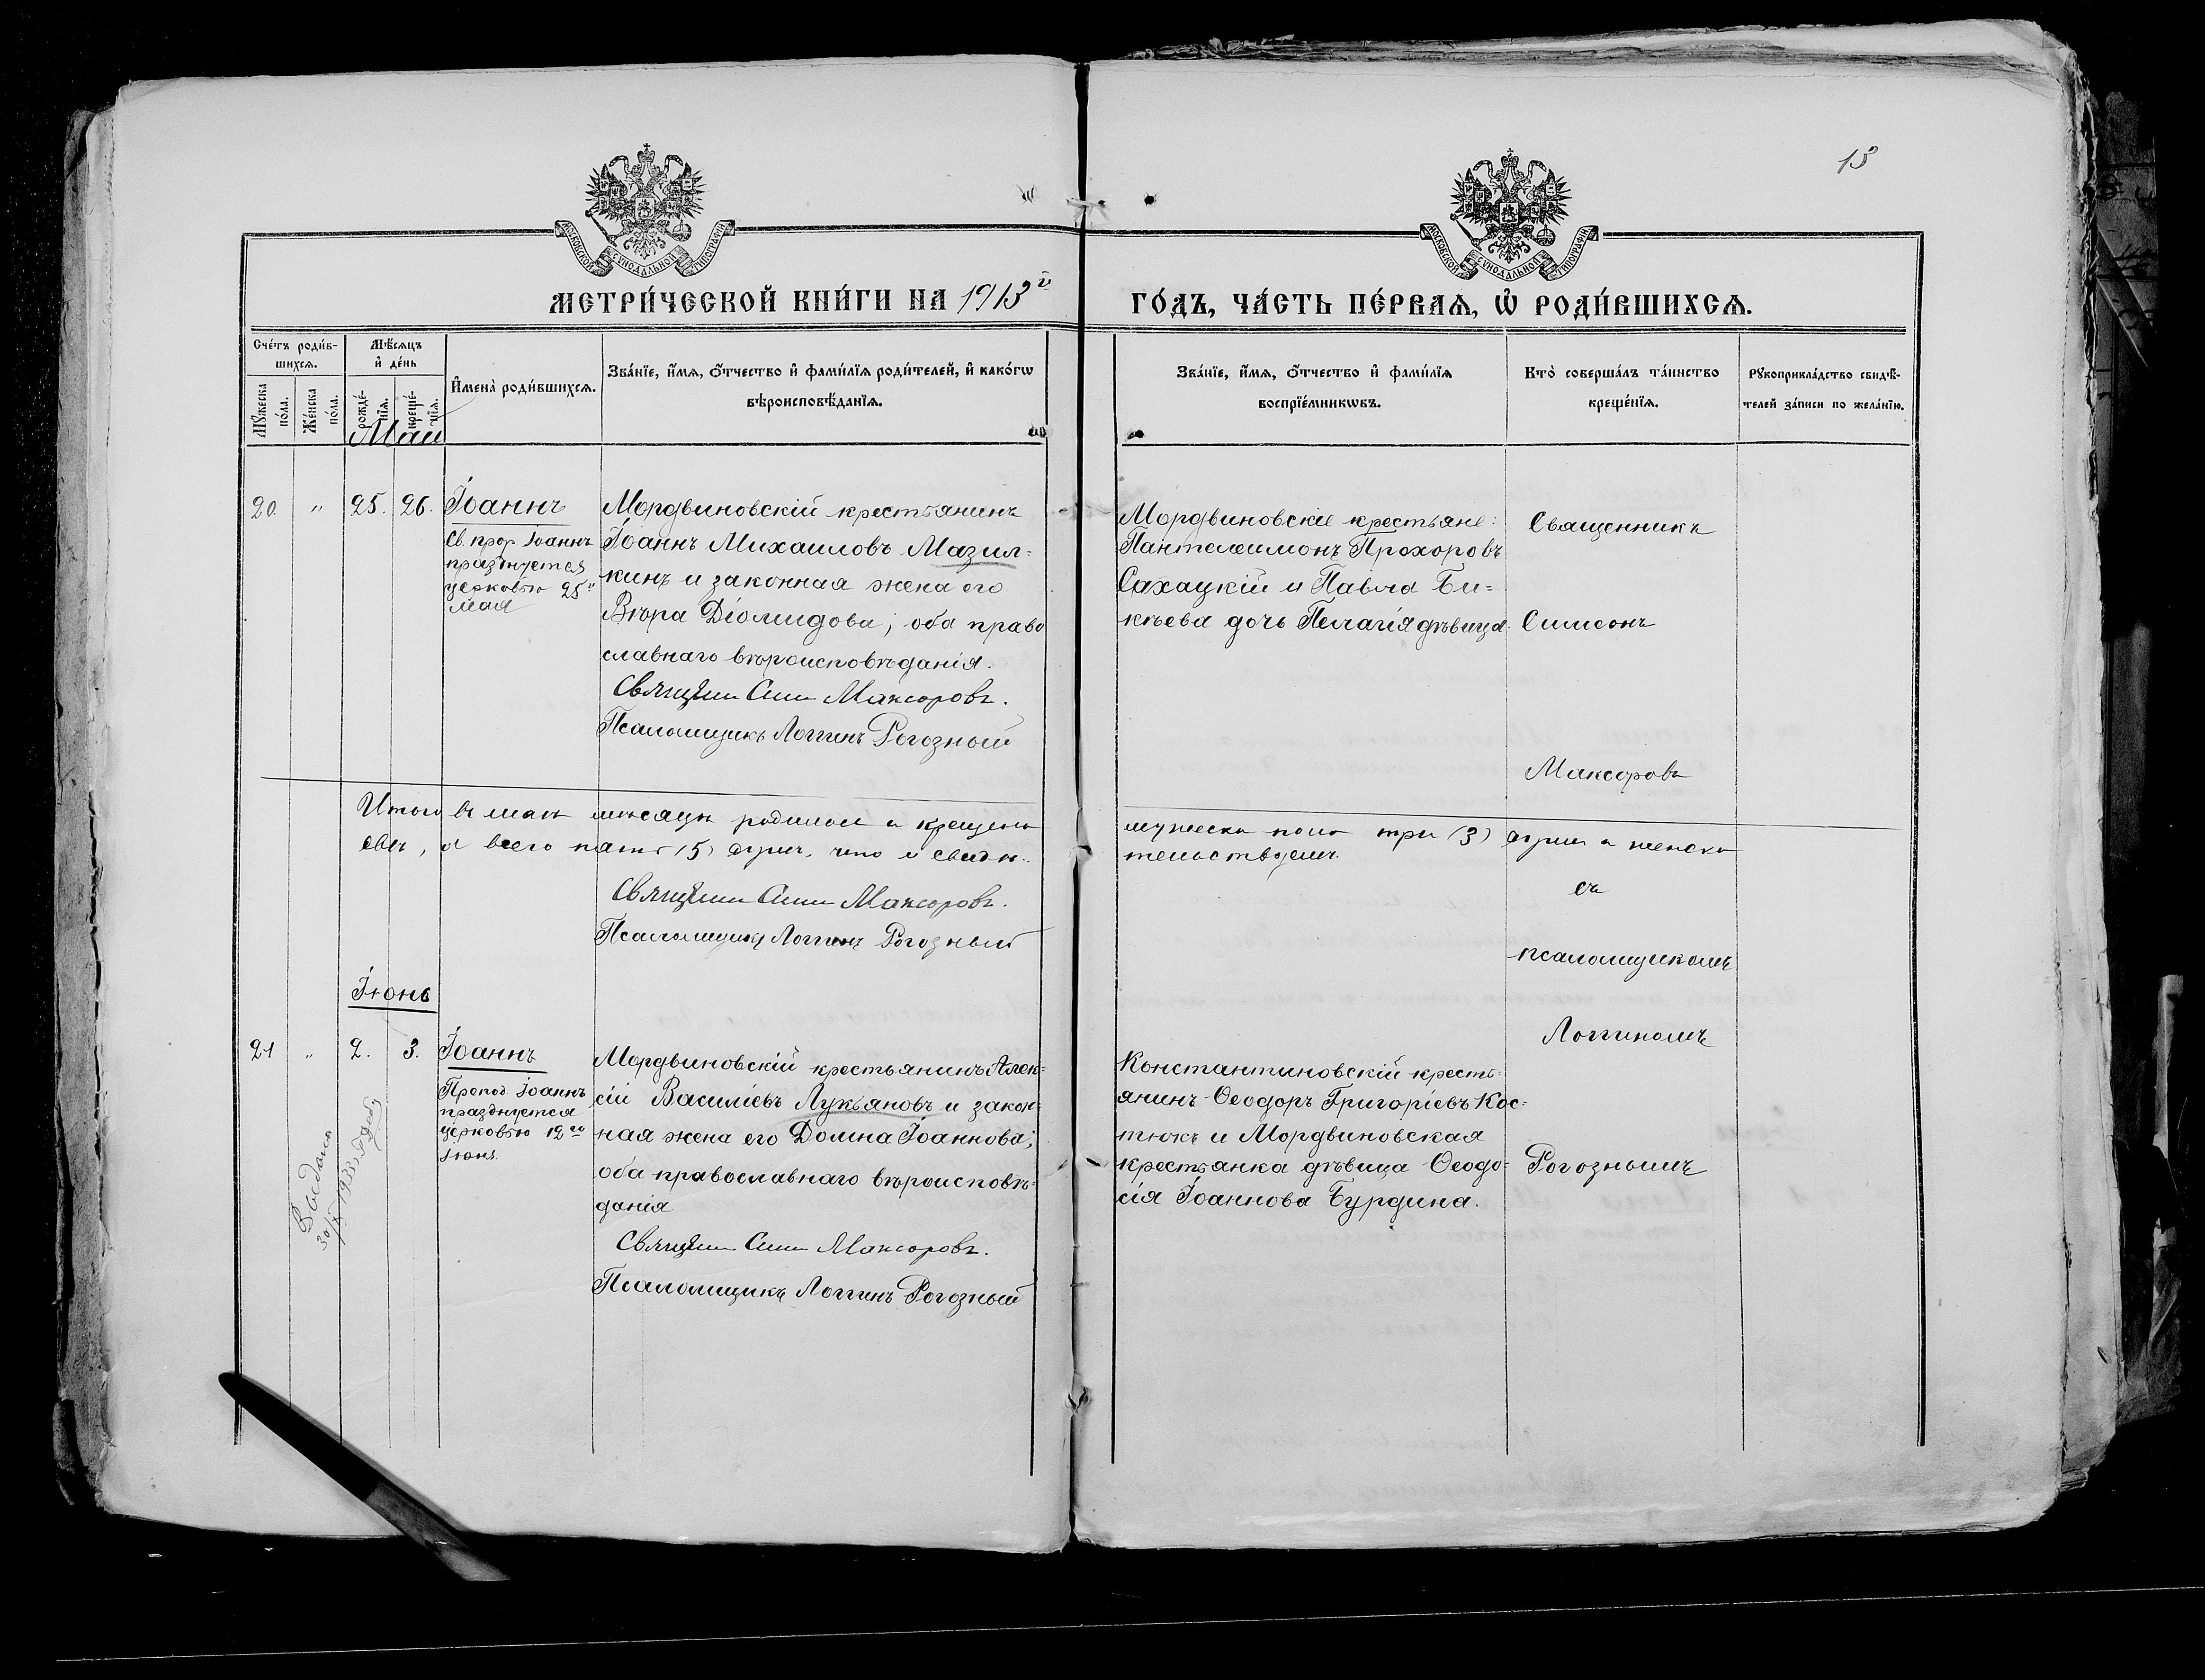 15
МОСКОВСКОЙ СѴНОДАЛЬНОЙ ТИПОГРАФІИ
МОСКОВСКОЙ СѴНОДАЛЬНОЙ ТИПОГРАФІИ
МЕТРИ́ЧЕСКОЙ КНИ́ГИ НА 1913й ГО́ДЪ, ЧА́СТЬ ПЕ́РВАѦ, Ѡ РОДИ́ВШИХСѦ.
Сче́тъ роди́в-
шихсѧ.
Мꙋ́жеска по́ла.
Же́нска по́ла.
Мѣ́сѧцъ
и҆ де́нь
рожде́-нїѧ.
креще́-нїѧ.
И҆мена̀ роди́вшихсѧ.
Зва́нїе, и҆́мѧ, ѻ҆́тчество и҆ фами́лїѧ роди́телей, и҆ како́гѡ
вѣроисповѣ́данїѧ.
Зва́нїе, и҆́мѧ, ѻ҆́тчество и҆ фами́лїѧ
воспрїе́мникѡвъ.
Кто̀ соверша́лъ та́инство
креще́нїѧ.
Рꙋкоприкла́дство свидѣ́-
телей за́писи по жела́нїю.
Май
20. " 25. 26. Іоаннъ
Св. прор Іоаннъ
празднуется
церковью 25го
мая
Мордвиновскій крестьянинъ
Іоаннъ Михаиловъ Мазил=
кинъ и законная жена его
Вѣра Діомидова; оба право
славнаго вѣроисповѣданія.
Священн Сим Максоровъ.
Псаломщикъ Логгинъ Рогозный
Мордвиновскіе крестьяне:
Пантелеимонъ Прохоровъ
Сахацкій и Павла Би=
кѣева дочь Пелагія дѣвица.
Священникъ
Симеонъ
Максоровъ
Итого въ маѣ мѣсяцѣ родилось и крещено мужеска пола три (3) души и женска
двѣ, а всего пять (5) душъ, что и свидѣ= тельствуемъ.
Священн Сим Максоровъ.
Псаломщикъ Логгинъ Рогозный
съ
псаломщикомъ
Логгиномъ
Рогознымъ
Іюнь
21 " 2. 3. Іоаннъ
Препод Іоаннъ
празднуется
церковью 12го
іюня
Мордвиновскій крестьянинъ Алек=
сій Василіевъ Лукьяновъ и закон=
ная жена его Домна Іоаннова;
оба православнаго вѣроисповѣ=
данія
Священн Сим Максоровъ.
Псаломщикъ Логгинъ Рогозный
Константиновскій кресть=
янинъ Ѳеодоръ Григоріевъ Кос=
тюкъ и Мордвиновская
крестьянка дѣвица Ѳеодо=
сія Іоаннова Бурдина.
Выдано